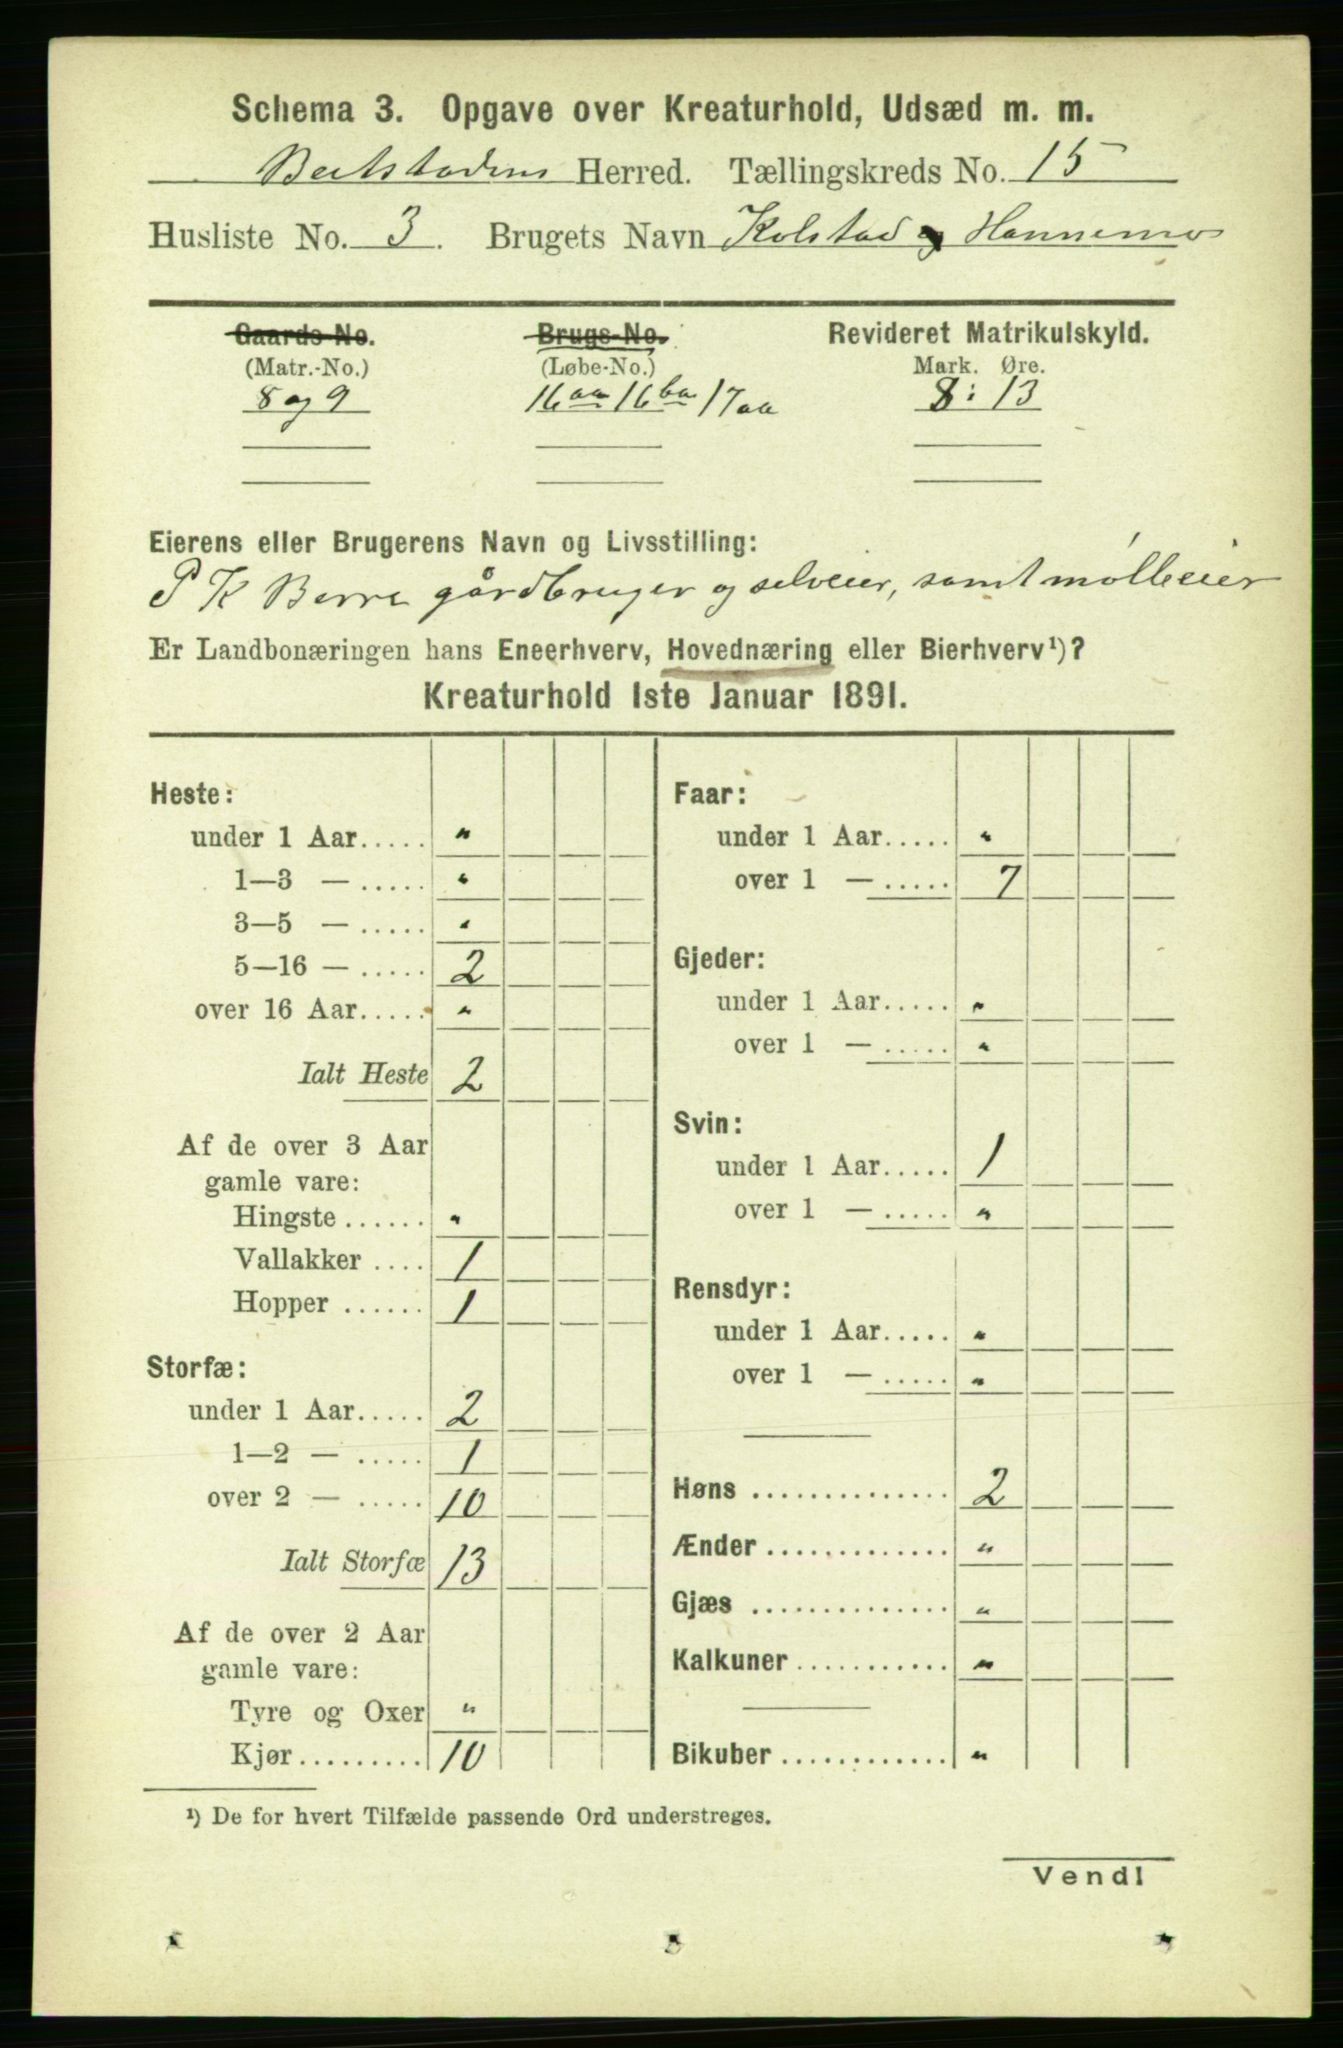 Schema 3. Opgave over Kreaturhold, Udsæd m. m.
Beitstadens Herred. Tællingskreds No. 15
Husliste No. 3. Brugets Navn Kolstad og Hannemo
Gaards-No. Brugs-No. Revideret Matrikulskyld.
(Matr.-No.) (Løbe-No.) Mark. Øre.
8 og 9 16aa 16ba 17aa 8: 13
Eierens eller Brugerens Navn og Livsstilling:
P K Berre gårdbruger og selveier, samt mølleeier
Er Landbonæringen hans Eneerhverv, Hovednæring eller Bierhverv¹)?
Kreaturhold 1ste Januar 1891.
Heste:
under 1 Aar..... "
1—3 — ..... "
3—5 — ..... "
5—16 — ..... 2
over 16 Aar..... "
Ialt Heste 2
Af de over 3 Aar
gamle vare:
Hingste ...... "
Vallakker .... 1
Hopper ...... 1
Storfæ:
under 1 Aar..... 2
1—2 — ..... 1
over 2 — ..... 10
Ialt Storfæ 13
Af de over 2 Aar
gamle vare:
Tyre og Oxer "
Kjør......... 10
Faar:
under 1 Aar..... "
over 1 — ..... 7
Gjeder:
under 1 Aar..... "
over 1 — ..... "
Svin:
under 1 Aar..... 1
over 1 — ..... "
Rensdyr:
under 1 Aar..... "
over 1 — ..... "
Høns .............. 2
Ænder ............. "
Gjæs .............. "
Kalkuner........... "
Bikuber ............ "
¹) De for hvert Tilfælde passende Ord understreges.
Vend!